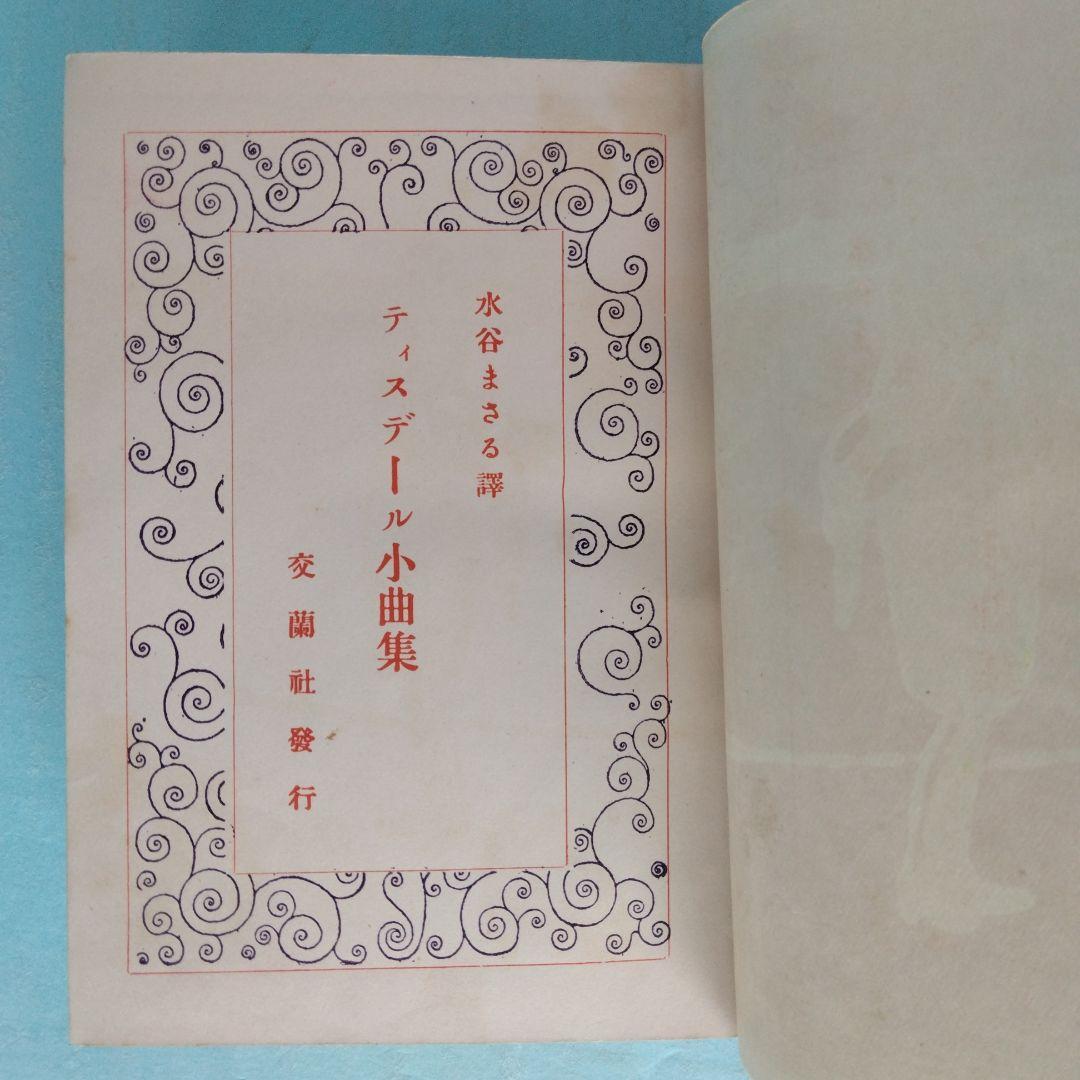 水谷まさる譯
ティスデール小曲集
交蘭社發行